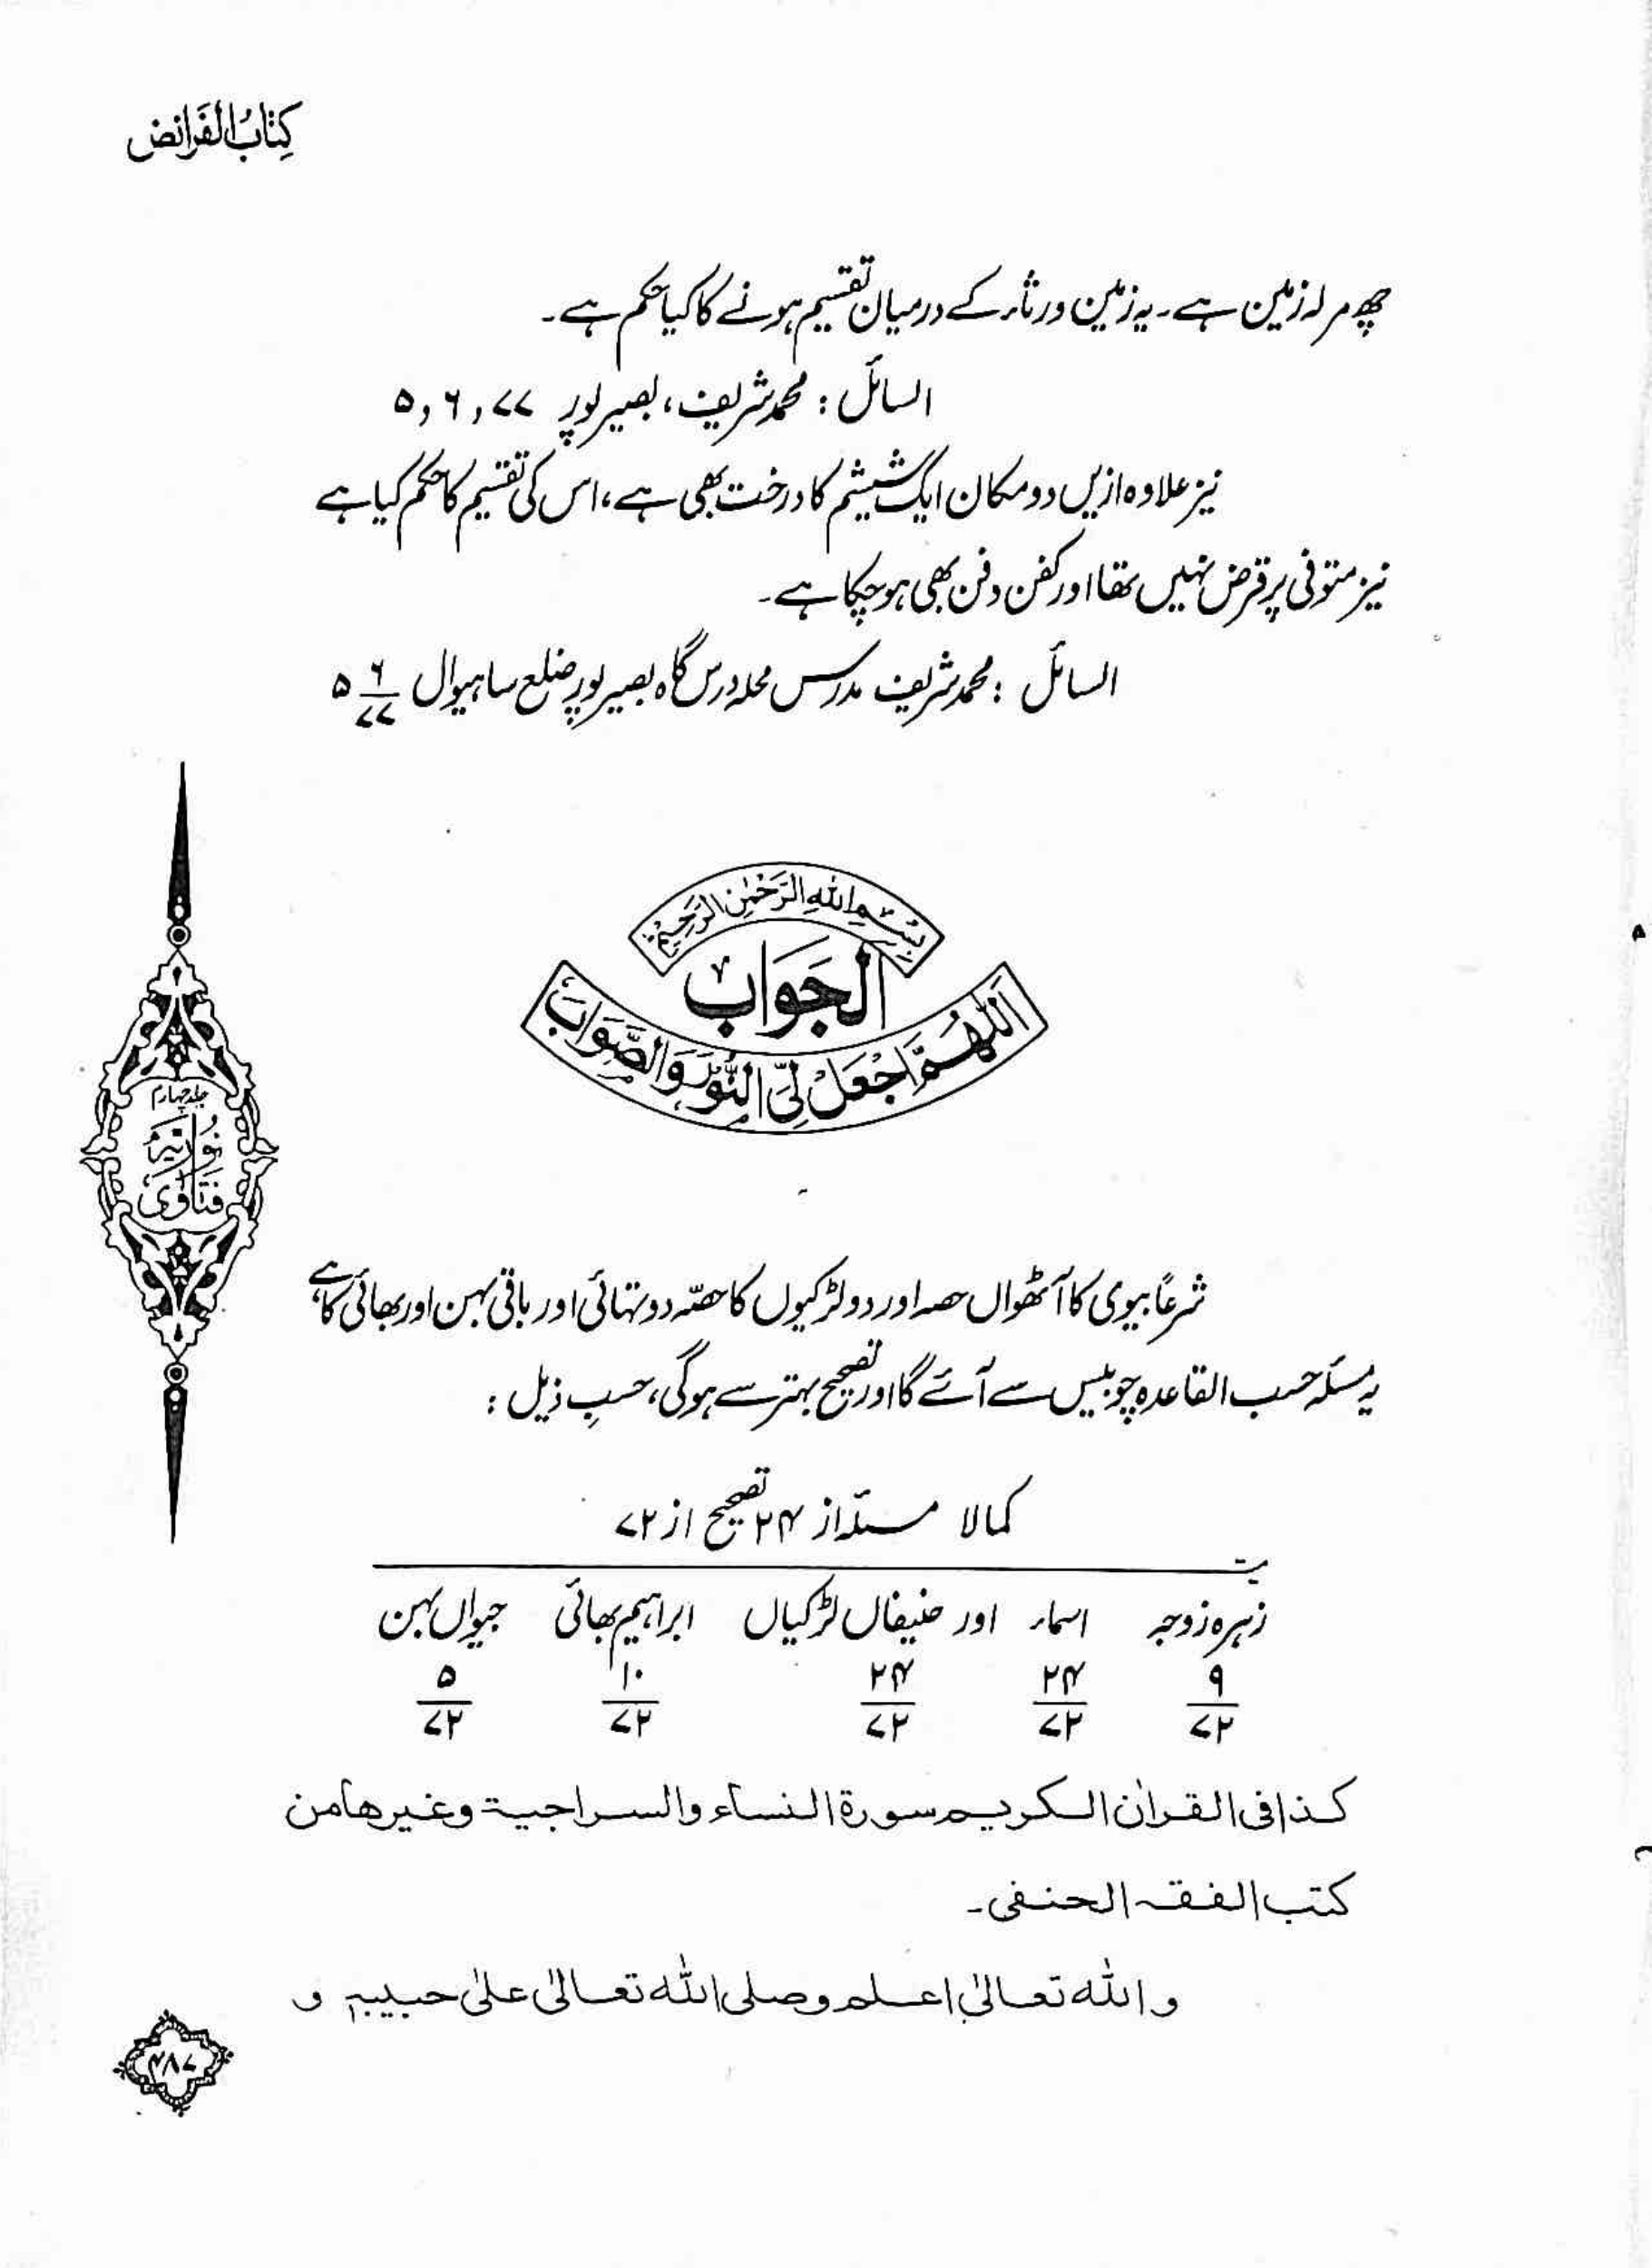 کِتَابُ الفَرَائض
چھ مرلہ زمین ہے۔ یہ زمین ورثاء کے درمیان تقسیم ہونے کا کیا حکم ہے۔
السائل : محمد شریف، بصیر پور ۷۷ , ۶ , ۵
نیز علاوہ ازیں دو مکان ایک شیشم کا درخت بھی ہے، اس کی تقسیم کا حکم کیا ہے
نیز متوفی پر قرض نہیں تھا اور کفن دفن بھی ہو چکا ہے۔
السائل : محمد شریف مدرس محلہ درس گاہ بصیر پور ضلع ساہیوال ۵ ۶/۷۷
بِسْمِ اللهِ الرَّحْمٰنِ الرَّحِيْمِ
الجَوَاب
اَللّٰهُمَّ اجْعَلْ لِيَ النُّوْرَ وَالصَّوَابَ
جلد چہارم
نُورِیَّہ
فَتَاوٰی
شرعًا بیوی کا آٹھواں حصہ اور دو لڑکیوں کا حصّہ دو تہائی اور باقی بہن اور بھائی کا ہے
یہ مسئلہ حسب القاعدہ چوبیس سے آئے گا اور تصحیح بہتر سے ہوگی، حسبِ ذیل :
کمالا مسئلہ از ۲۴ تصحیح از ۷۲
میت
زہرہ زوجہ اسماء اور حنیفاں لڑکیاں ابراہیم بھائی جیواں بہن
۹/۷۲ ۲۴/۷۲ ۲۴/۷۲ ۱۰/۷۲ ۵/۷۲
كذا فى القران الكريم سورة النساء والسراجية وغيرها من
كتب الفقه الحنفى۔
والله تعالىٰ اعلم وصلى الله تعالىٰ علىٰ حبيبهٖ و
۴۸۷